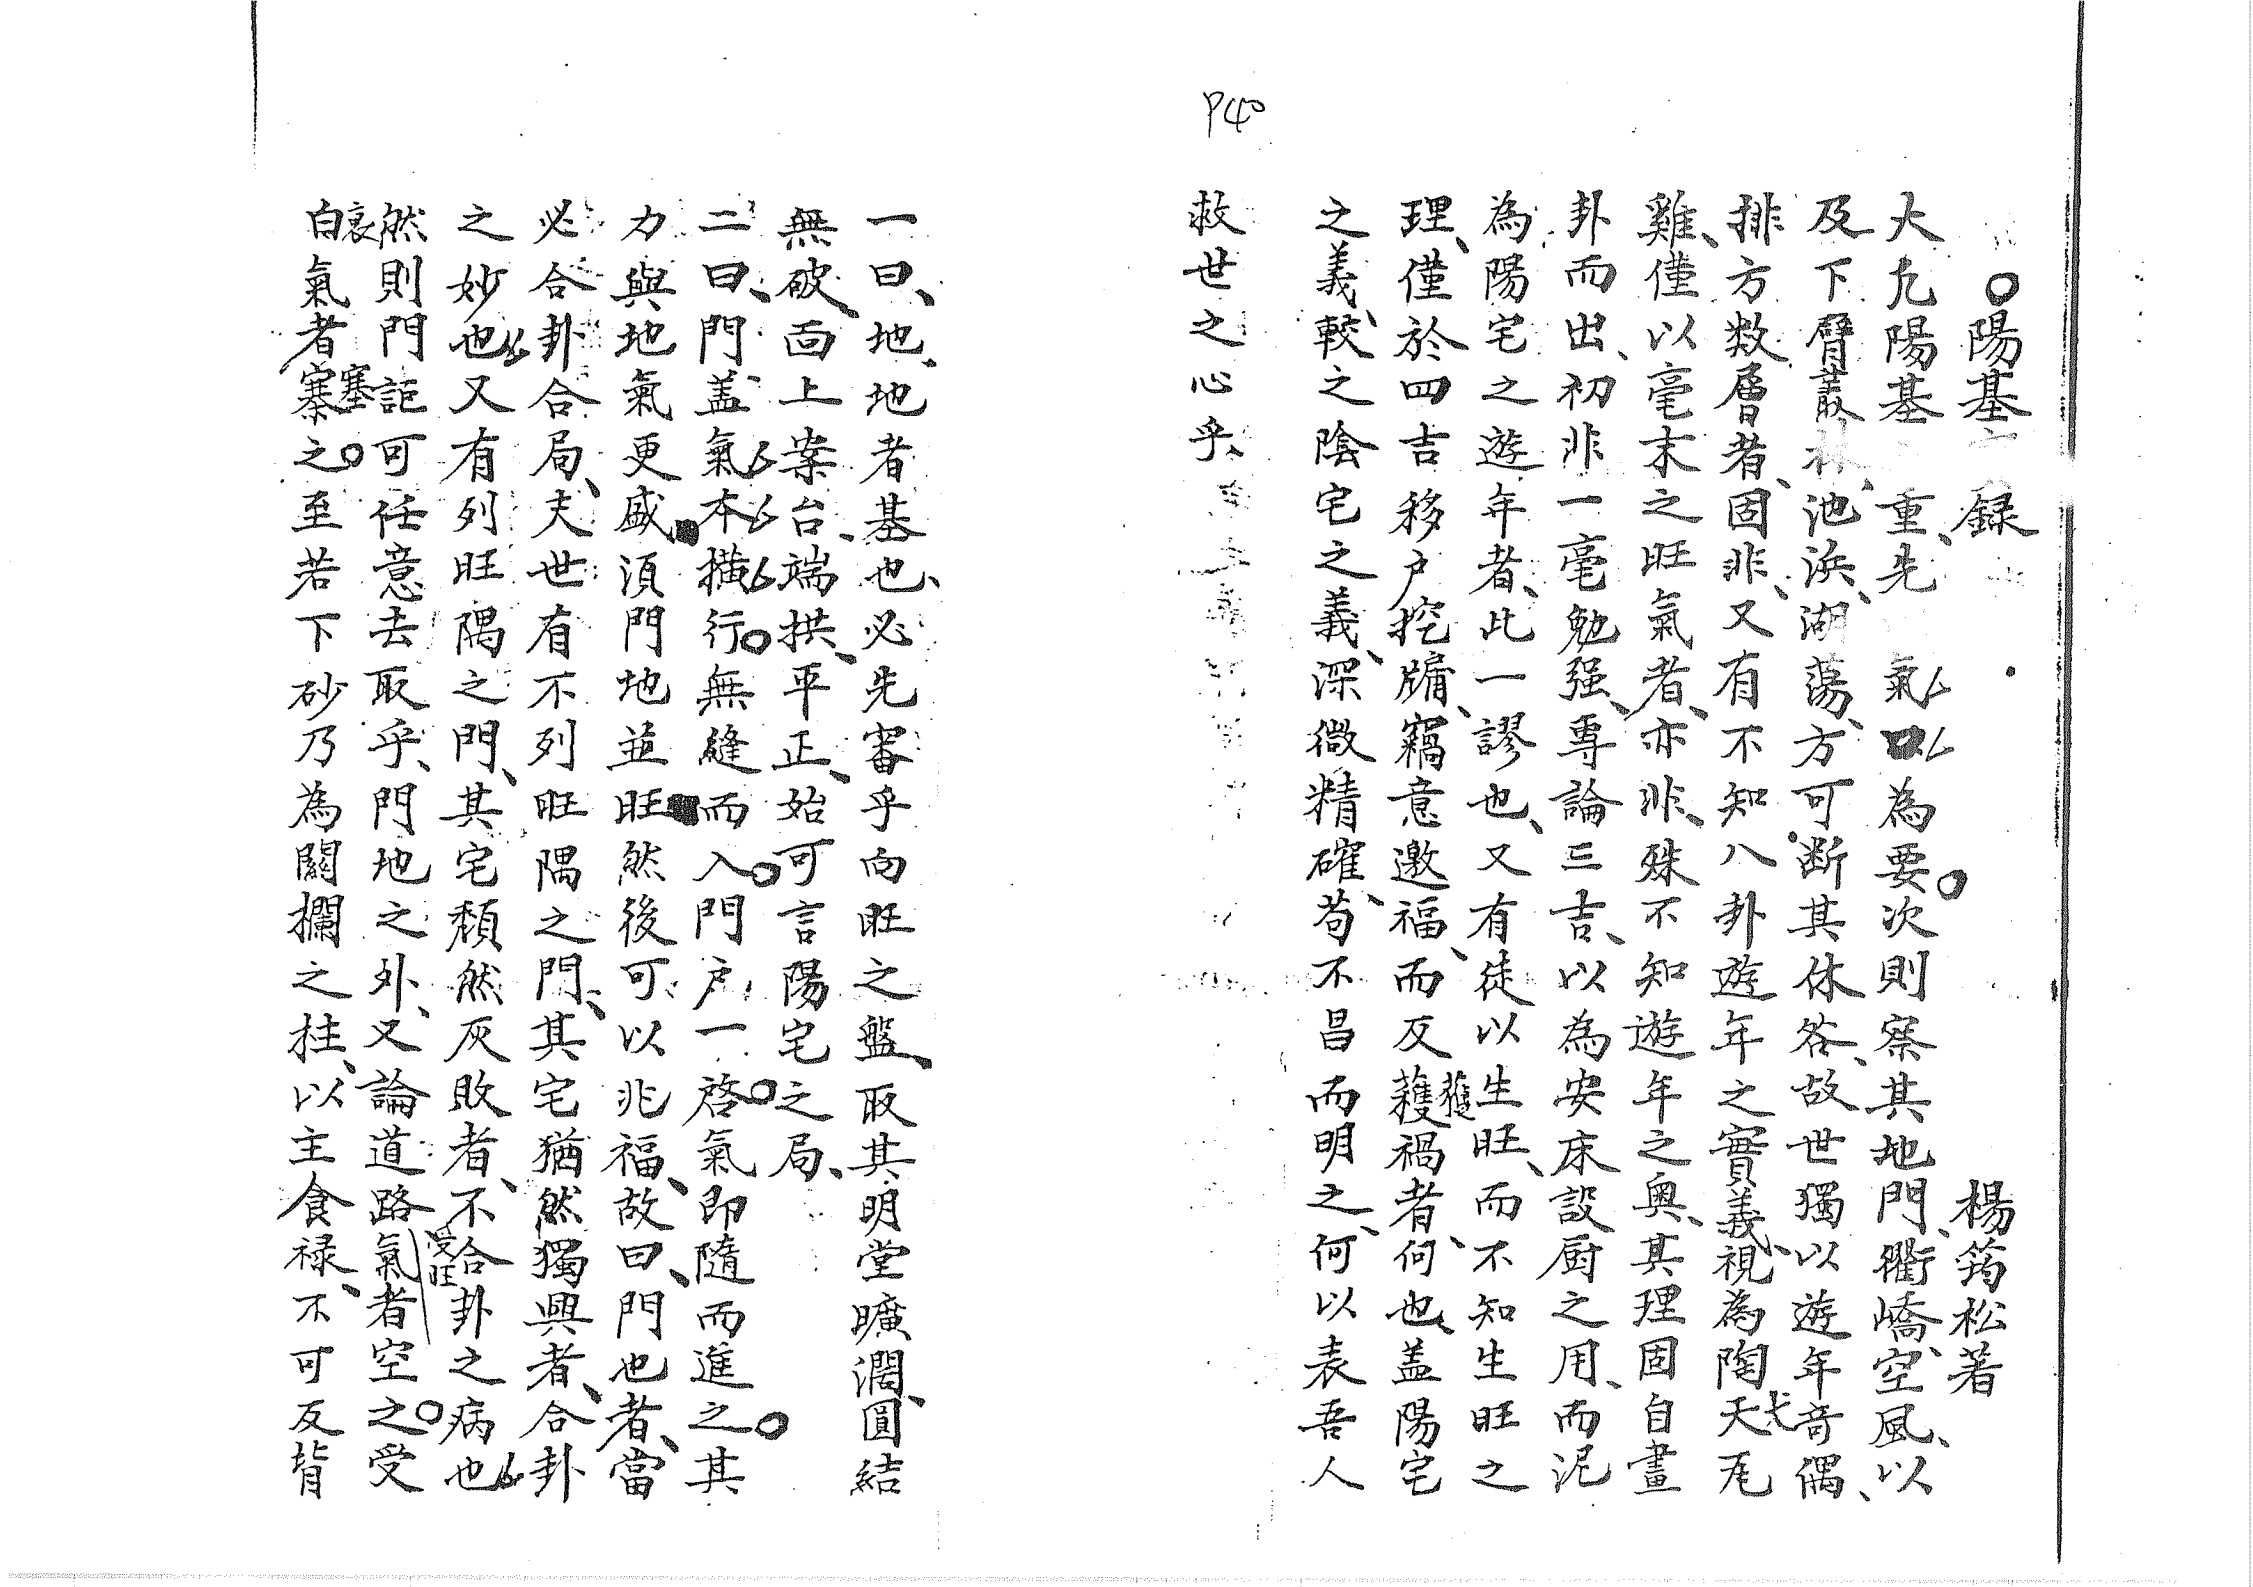 P40
陽基 録 楊筠松著
大凡陽基 重先 氣口為要次則察其地門、衢嶠、空風、以
及下臂叢林、池浜、湖蕩、方可断其休咎、故世獨以遊年奇偶、
排方数層者、固非、又有不知八卦遊年之實義、視為陶天瓦
弋
雞、僅以毫末之旺氣者、亦非、殊不知遊年之奥、其理固自畫
卦而出、初非一毫勉强、專論三吉、以為安床設厨之用、而泥
為陽宅之遊年者、此一謬也、又有徒以生旺、而不知生旺之
理、僅於四吉移户挖牖、竊意邀福、而反蒦禍者、何也、盖陽宅
獲
之義、較之陰宅之義、深微精確、苟不昌而明之、何以表吾人
救世之心乎、
一曰、地、地者基也、必先審乎向旺之盤、取其明堂曠濶、圓結
無破、面上案台、端拱、平正、始可言陽宅之局、
二曰、門、盖氣本横行無縫而入門户一啓氣即隨而進之其
力與地氣更盛須門地並旺然後可以兆福、故曰、門也者、當
必合卦合局、夫世有不列旺隅之門、其宅猶然獨興者、合卦
之妙也又有列旺隅之門、其宅頹然灰敗者、不合卦之病也
然則門詎可任意去取乎、門地之外、又論道路氣者空之受
受旺
衰
白氣者寨之至若下砂乃為關攔之拄、以主食禄、不可反背
塞